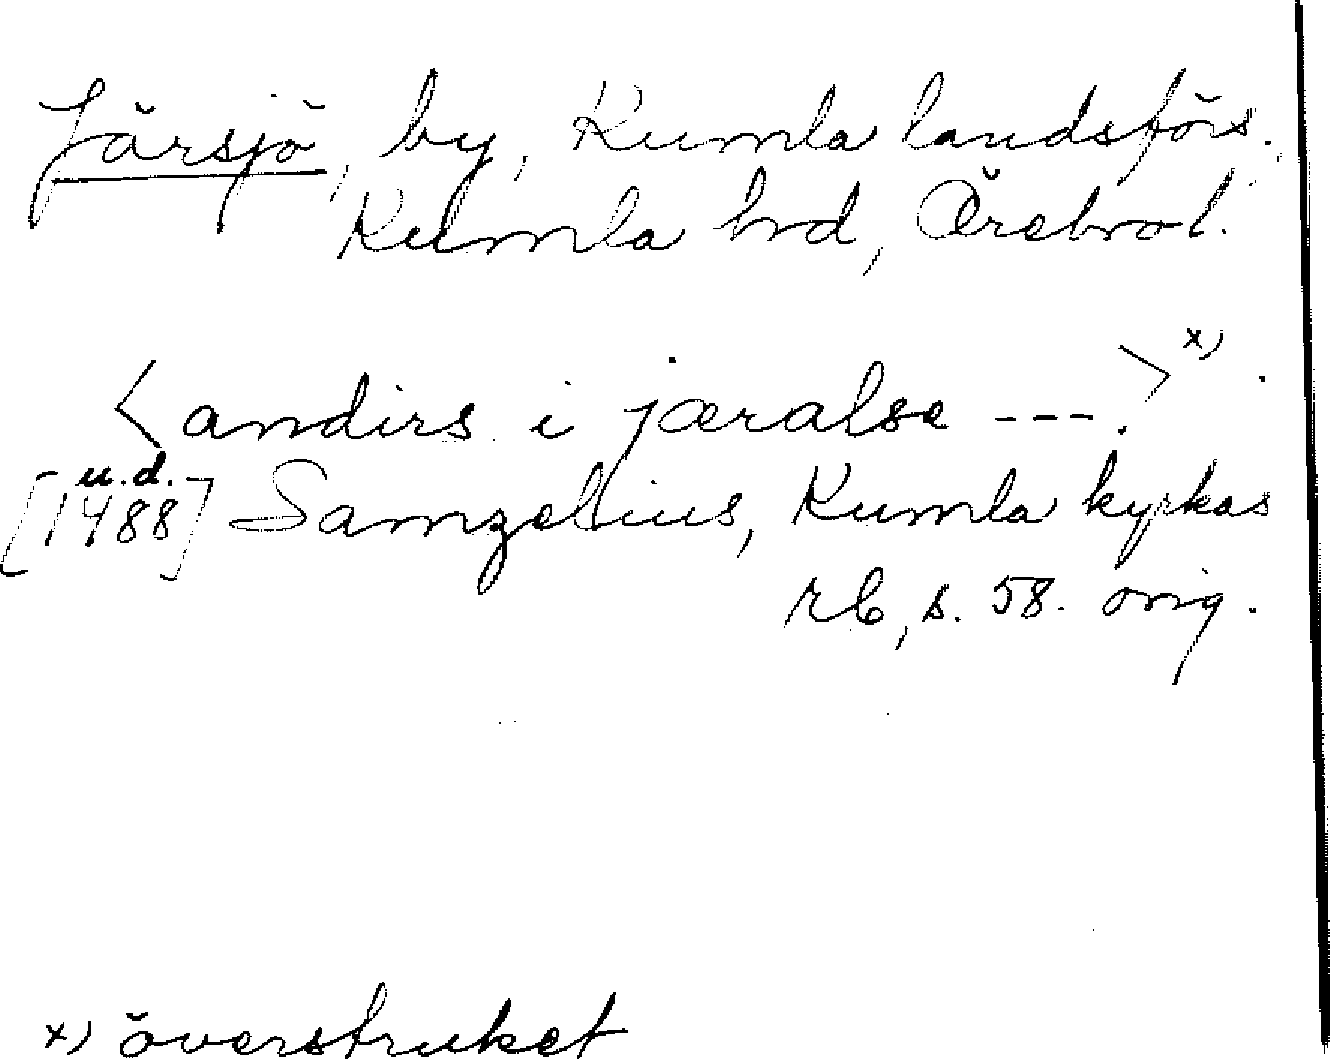 Järsjö, by, Kumla landsförs.,
Kumla hrd, Örebro l.
<andirs i jæralse ---.>x)
[u.d. 1488] Samzelius, Kumla kyrkas
rb, s. 58. orig.
x) överstruket